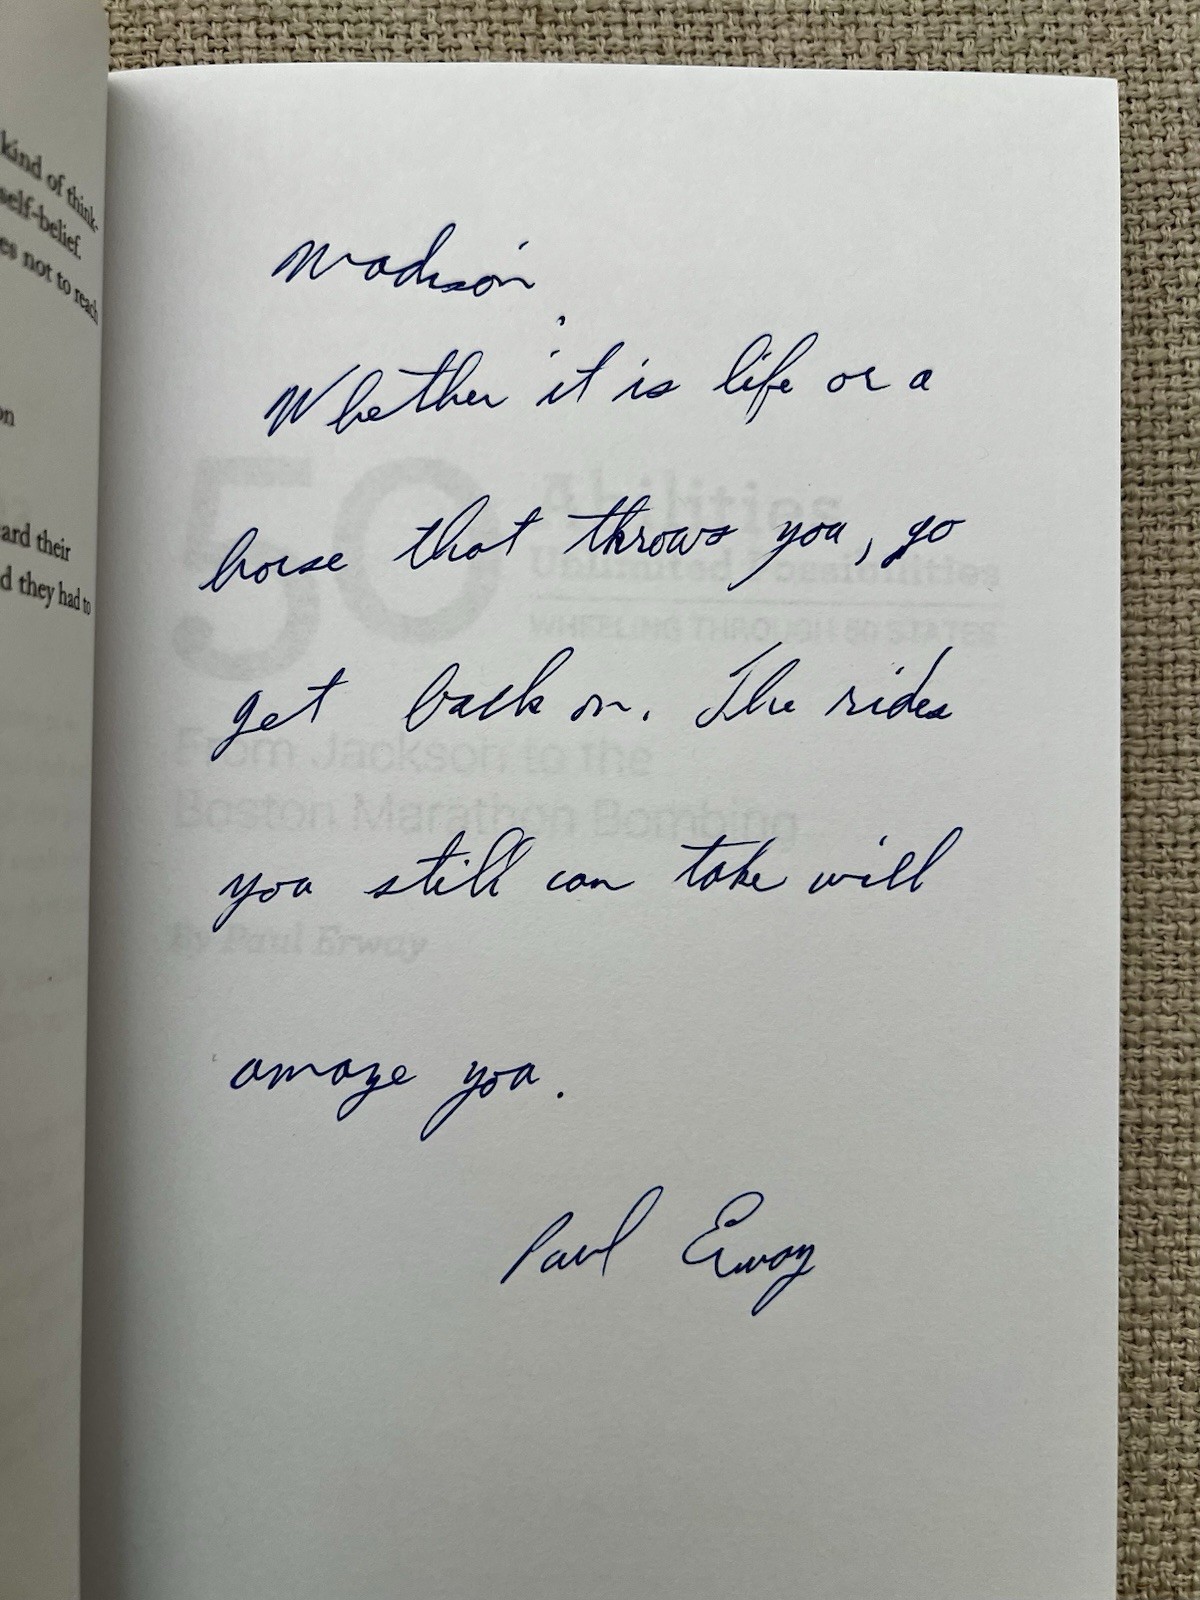 kind of think-
self-belief.
es not to reach
on
ard their
d they had to
Madison,
Whether it is life or a
horse that throws you, go
get back on. The rides
you still can take will
amaze you.
Paul Erway
50 Abilities
Unlimited Possibilities
WHEELING THROUGH 50 STATES
From Jackson to the
Boston Marathon Bombing
By Paul Erway